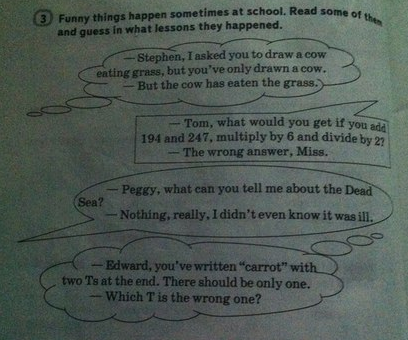 3 Funny things happen sometimes at school. Read some of them
and guess in what lessons they happened.
— Stephen, I asked you to draw a cow
eating grass, but you've only drawn a cow.
— But the cow has eaten the grass.
— Tom, what would you get if you add
194 and 247, multiply by 6 and divide by 2?
— The wrong answer, Miss.
— Peggy, what can you tell me about the Dead
Sea?
— Nothing, really, I didn't even know it was ill.
— Edward, you've written “carrot” with
two Ts at the end. There should be only one.
— Which T is the wrong one?